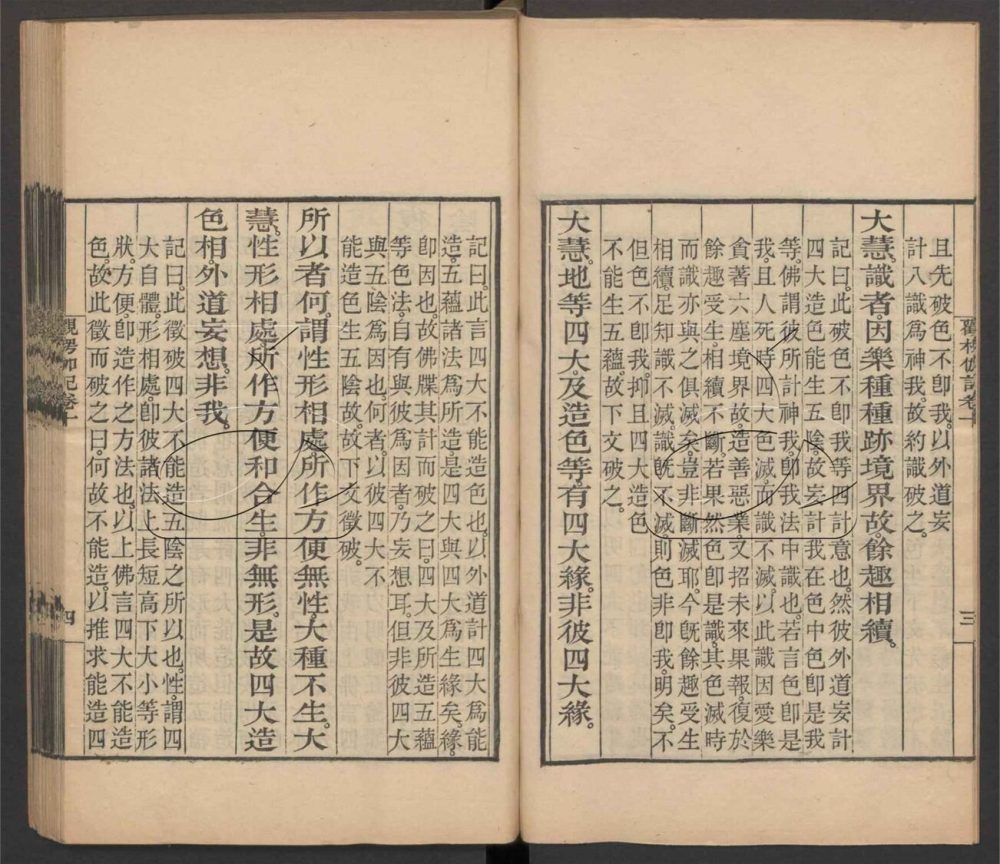 且先破色不卽我以外道妄
計八識爲神我故約識破之。
大慧識者因樂種種跡境界故餘趣相續。
記曰此破色不卽我等四計意也然彼外道妄計
四大造色能生五陰故妄計我在色中色卽是我
等佛謂彼所計神我卽我法中識也若言色卽是
我且人死時四大色滅而識不滅以此識因愛樂
貪著六塵境界故造善惡業又招未來果報復於
餘趣受生相續不斷若果然色卽是識其色滅時
而識亦與之俱滅矣豈非斷滅耶今旣餘趣受生
相續足知識不滅識旣不滅則色非卽我明矣不
但色不卽我抑且四大造色
不能生五蘊故下文破之。
大慧地等四大及造色等有四大緣非彼四大緣。
三
記曰此言四大不能造色也以外道計四大爲能
造五蘊諸法爲所造是四大與四大爲生緣矣緣
卽因也故佛牒其計而破之曰四大及所造五蘊
等色法自有與彼爲因者乃妄想耳但非彼四大
與五陰爲因也何者以彼四大不
能造色生五陰故故下文徵破。
所以者何謂性形相處所作方便無性大種不生大
慧性形相處所作方便和合生非無形是故四大造
色相外道妄想非我。
記曰此徵破四大不能造五陰之所以也性謂四
大自體形相處卽彼諸法上長短高下大小等形
狀方便卽造作之方法也以上佛言四大不能造
色故此徵而破之曰何故不能造以推求能造四
四